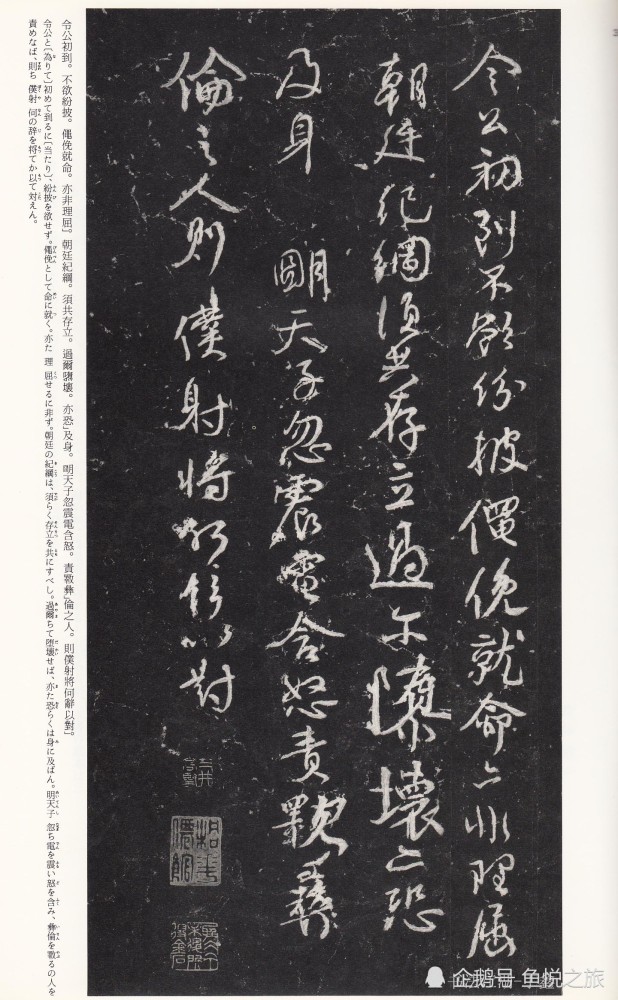 令公初到不欲紛披僶俛就命亦非理屈
朝廷紀綱須共存立過尔隳壞亦恐
及身 明天子忽震電含怒責斁彝
倫之人則 僕射將何辞以對
令公初到。不欲紛披。僶俛就命。亦非理屈』。朝廷紀綱。須共存立。過爾隳壞。亦恐』及身。明天子忽震電含怒。責斁彝』倫之人。則僕射將何辭以對』。
令公と〔為りて〕初めて到るに〔当たり〕、紛披を欲せず。僶俛として命に就く。亦た 理 屈せるに非ず。朝廷の紀綱は、須らく存立を共にすべし。過爾ちて堕壊せば、亦た恐らくは身に及ばん。明天子 忽ち電を震い怒を含み、彝倫を斁るの人を
責めなば、則ち 僕射 何の辞を将てか以て対えん。
企鹅号 鱼悦之旅